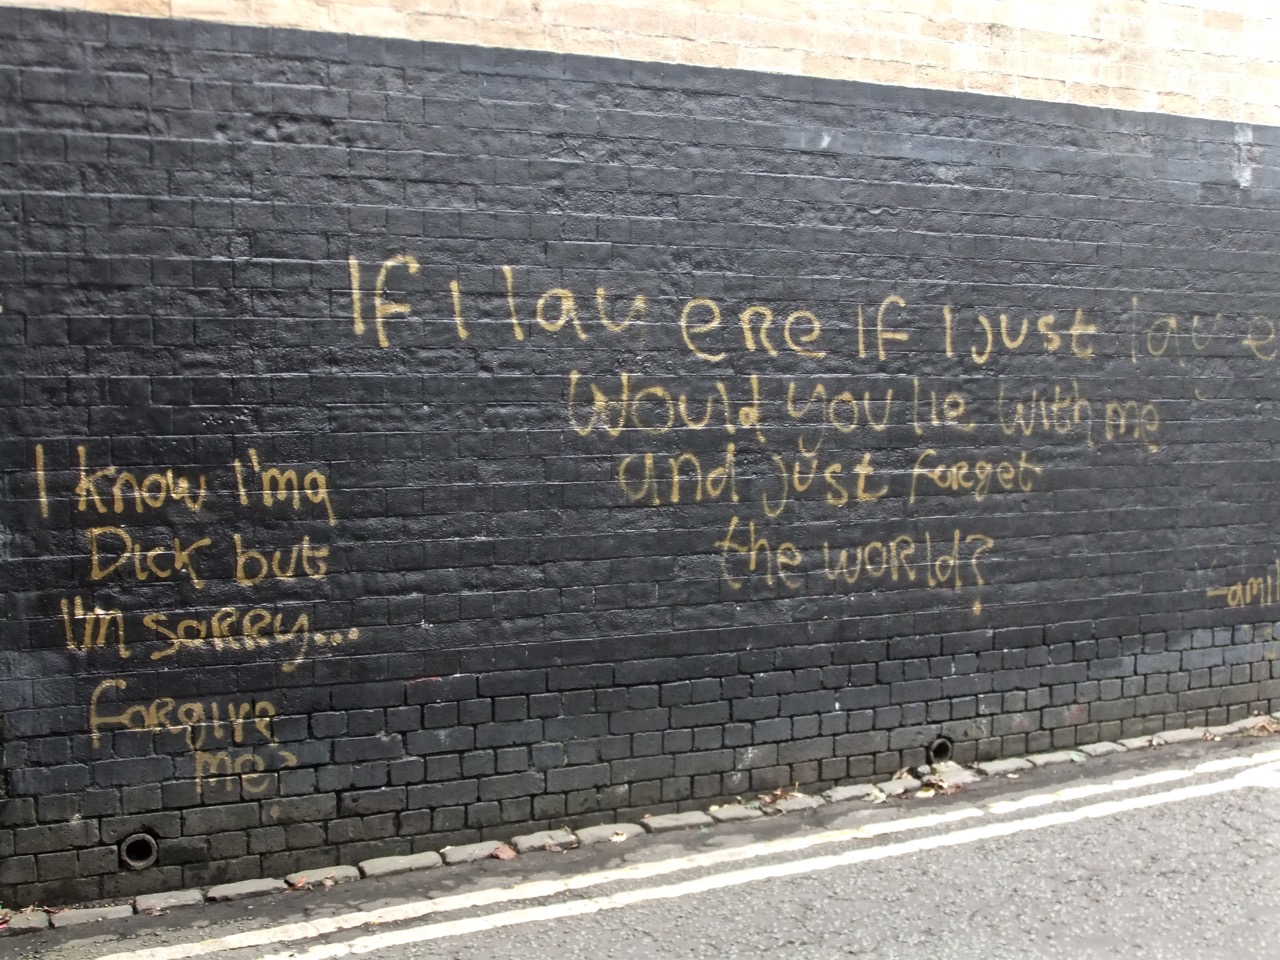 If I lay ere If I just lay e
Would you lie with me
and just forget
the world?
I know I'm a
Dick but
I'm sorry...
forgive
me?